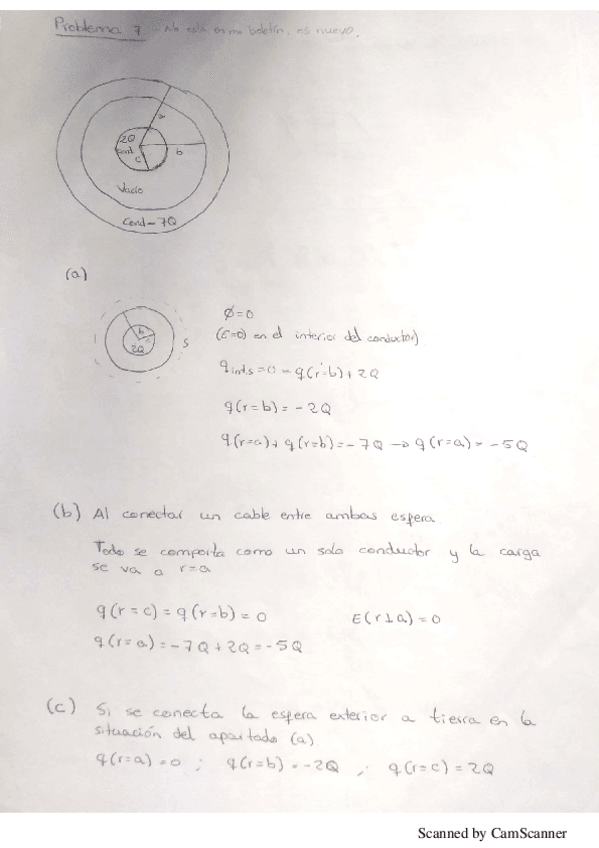 Problema 7 - No está en mi boletín, es nuevo.
a
2Q
cond
b
c
Vacío
Cond -7Q
(a)
b
c
2Q
S
Ø=0
(E=0) en el interior del conductor)
q int,s = 0 = q(r=b) + 2Q
q(r=b) = -2Q
q(r=a) + q(r=b) = -7Q → q(r=a) = -5Q
(b) Al conectar un cable entre ambas esfera
Todo se comporta como un solo conductor y la carga
se va a r=a
q(r=c) = q(r=b) = 0 E(r⊥a) = 0
q(r=a) = -7Q + 2Q = -5Q
(c) Si se conecta la esfera exterior a tierra en la
situación del apartado (a)
q(r=a) = 0 ; q(r=b) = -2Q ; q(r=c) = 2Q
Scanned by CamScanner